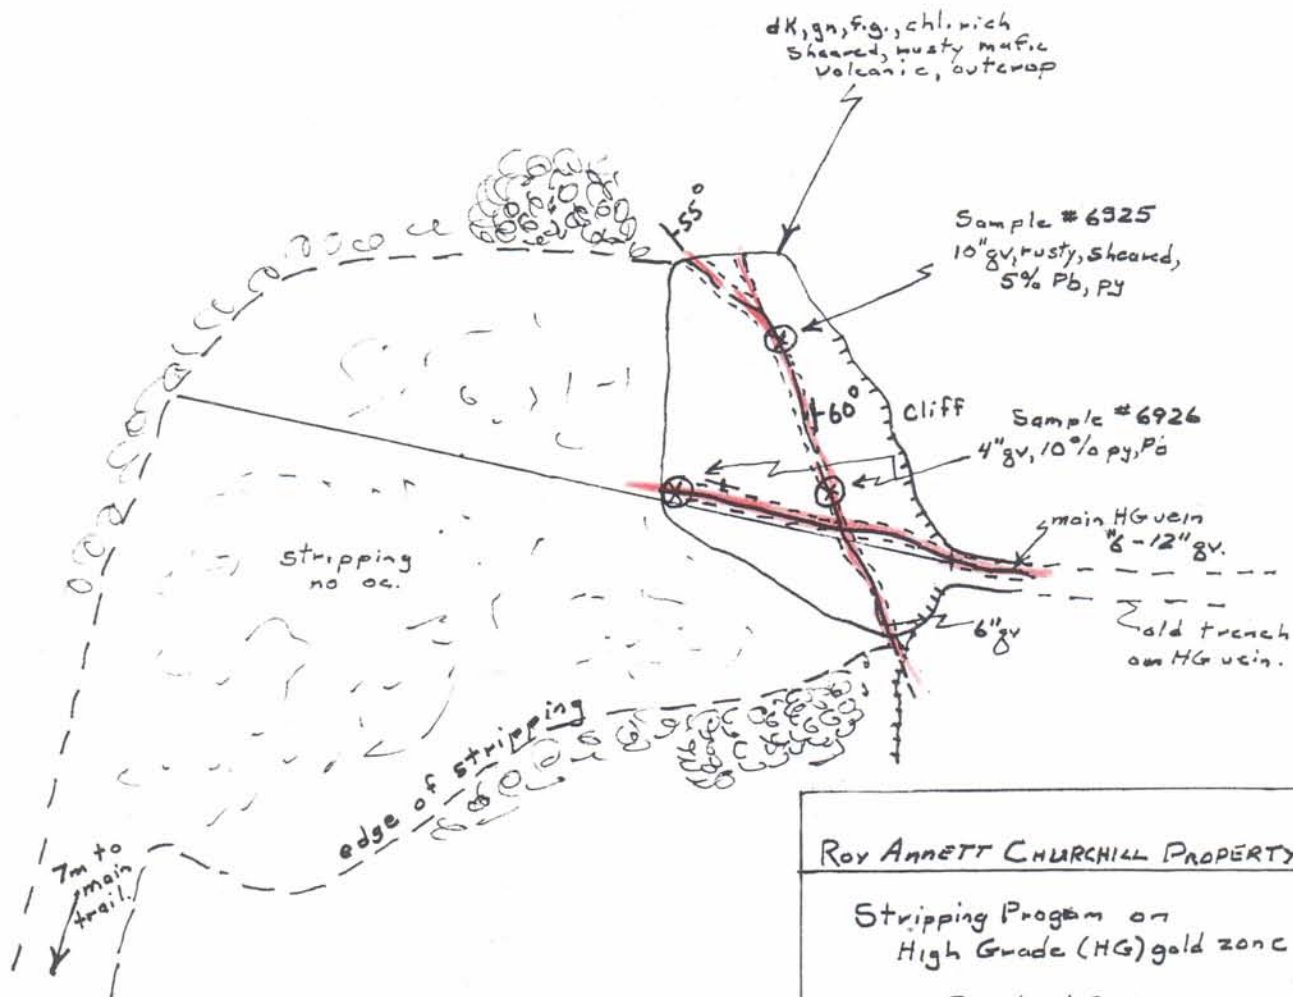 dk, gn, f.g., chl. rich
sheared, rusty mafic
volcanic, outcrop
55°
Sample #6925
10" qv, rusty, sheared,
5% Pb, py
60°
Cliff
Sample #6926
4" qv, 10% py, Pb
main HG vein
"6-12" qv.
stripping
no oc.
6" qv
old trench
on HG vein.
edge of stripping
7m to
main
trail.
ROY ANNETT CHURCHILL PROPERTY
Stripping Program on
High Grade (HG) gold zone